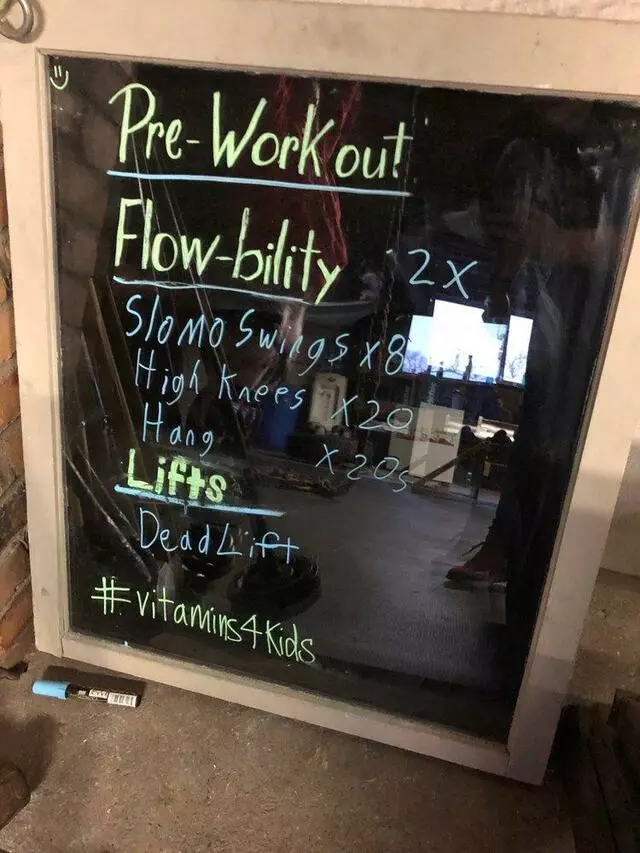 Pre-Workout
Flow-bility 2X
Slomo Swings x8
High Knees x20
Hang x20s
Lifts
DeadLift
#vitamins4kids